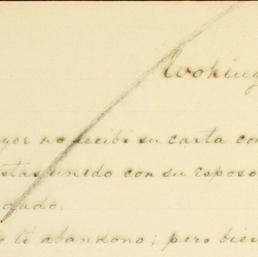 Woking
yor no recibi su carta con
stas unido con su esposo
dado.
o te abandono; pero bien